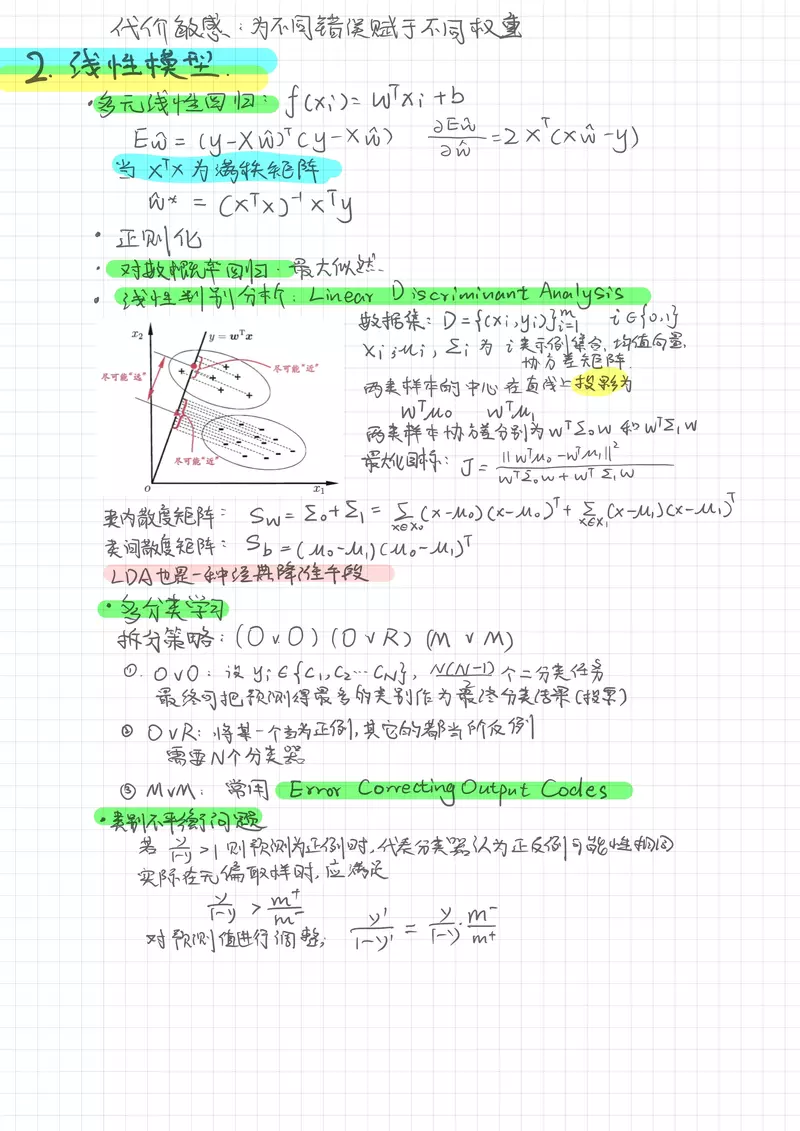 代价敏感：为不同错误赋于不同权重
2. 线性模型.
·多元线性回归： f(xi)= wᵀxi + b
Eŵ = (y-Xŵ)ᵀ(y-Xŵ) ∂Eŵ/∂ŵ = 2Xᵀ(Xŵ-y)
当 XᵀX 为满秩矩阵
ŵ* = (XᵀX)⁻¹Xᵀy
· 正则化
· 对数概率回归· 最大似然.
· 线性判别分析：Linear Discriminant Analysis
数据集：D={(xi,yi)}ᵐᵢ₌₁ i∈{0,1}
Xi,μi,Σi 为 i 表示例集合,均值向量,
协方差矩阵.
两类样本的中心在直线上投影为
wᵀμ₀ wᵀμ₁
两类样本协方差分别为wᵀΣ₀w 和wᵀΣ₁w
最大化目标： J = ‖wᵀμ₀-wᵀμ₁‖² / wᵀΣ₀w + wᵀΣ₁w
x₂
y = wᵀx
尽可能“远”
尽可能“近”
尽可能“近”
O
x₁
类内散度矩阵： Sw = Σ₀+Σ₁ = Σx∈X₀(x-μ₀)(x-μ₀)ᵀ + Σx∈X₁(x-μ₁)(x-μ₁)ᵀ
类间散度矩阵： Sb = (μ₀-μ₁)(μ₀-μ₁)ᵀ
LDA也是一种经典降维手段
·多分类学习
拆分策略：(OvO) (OvR) (MvM)
①. OvO：设 yi∈{C₁,C₂…CN}, N(N-1)/2 个二分类任务
最终可把预测得最多的类别作为最终分类结果(投票)
② OvR：将某一个当为正例,其它的都当作反例
需要N个分类器
③ MvM： 常用 Error Correcting Output Codes
·类别不平衡问题
若 y/1-y >1 则预测为正例时,代表分类器认为正反例可能性相同
实际在无偏取样时,应满足
y/1-y > m⁺/m⁻
对预测值进行调整； y'/1-y' = y/1-y · m⁻/m⁺